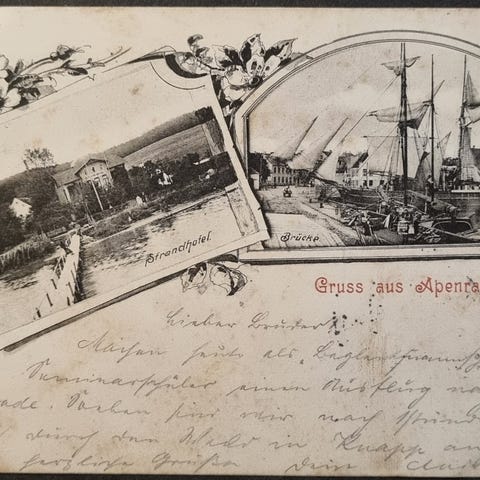 Strandhotel.
Brücke
Gruss aus Apenra
Lieber Bruder!
Machen heute als
Seminarschüler einen Ausflug na
ade. Soeben sind wir nach
durch den Wald in Knapp an
herzliche Grüße Dein